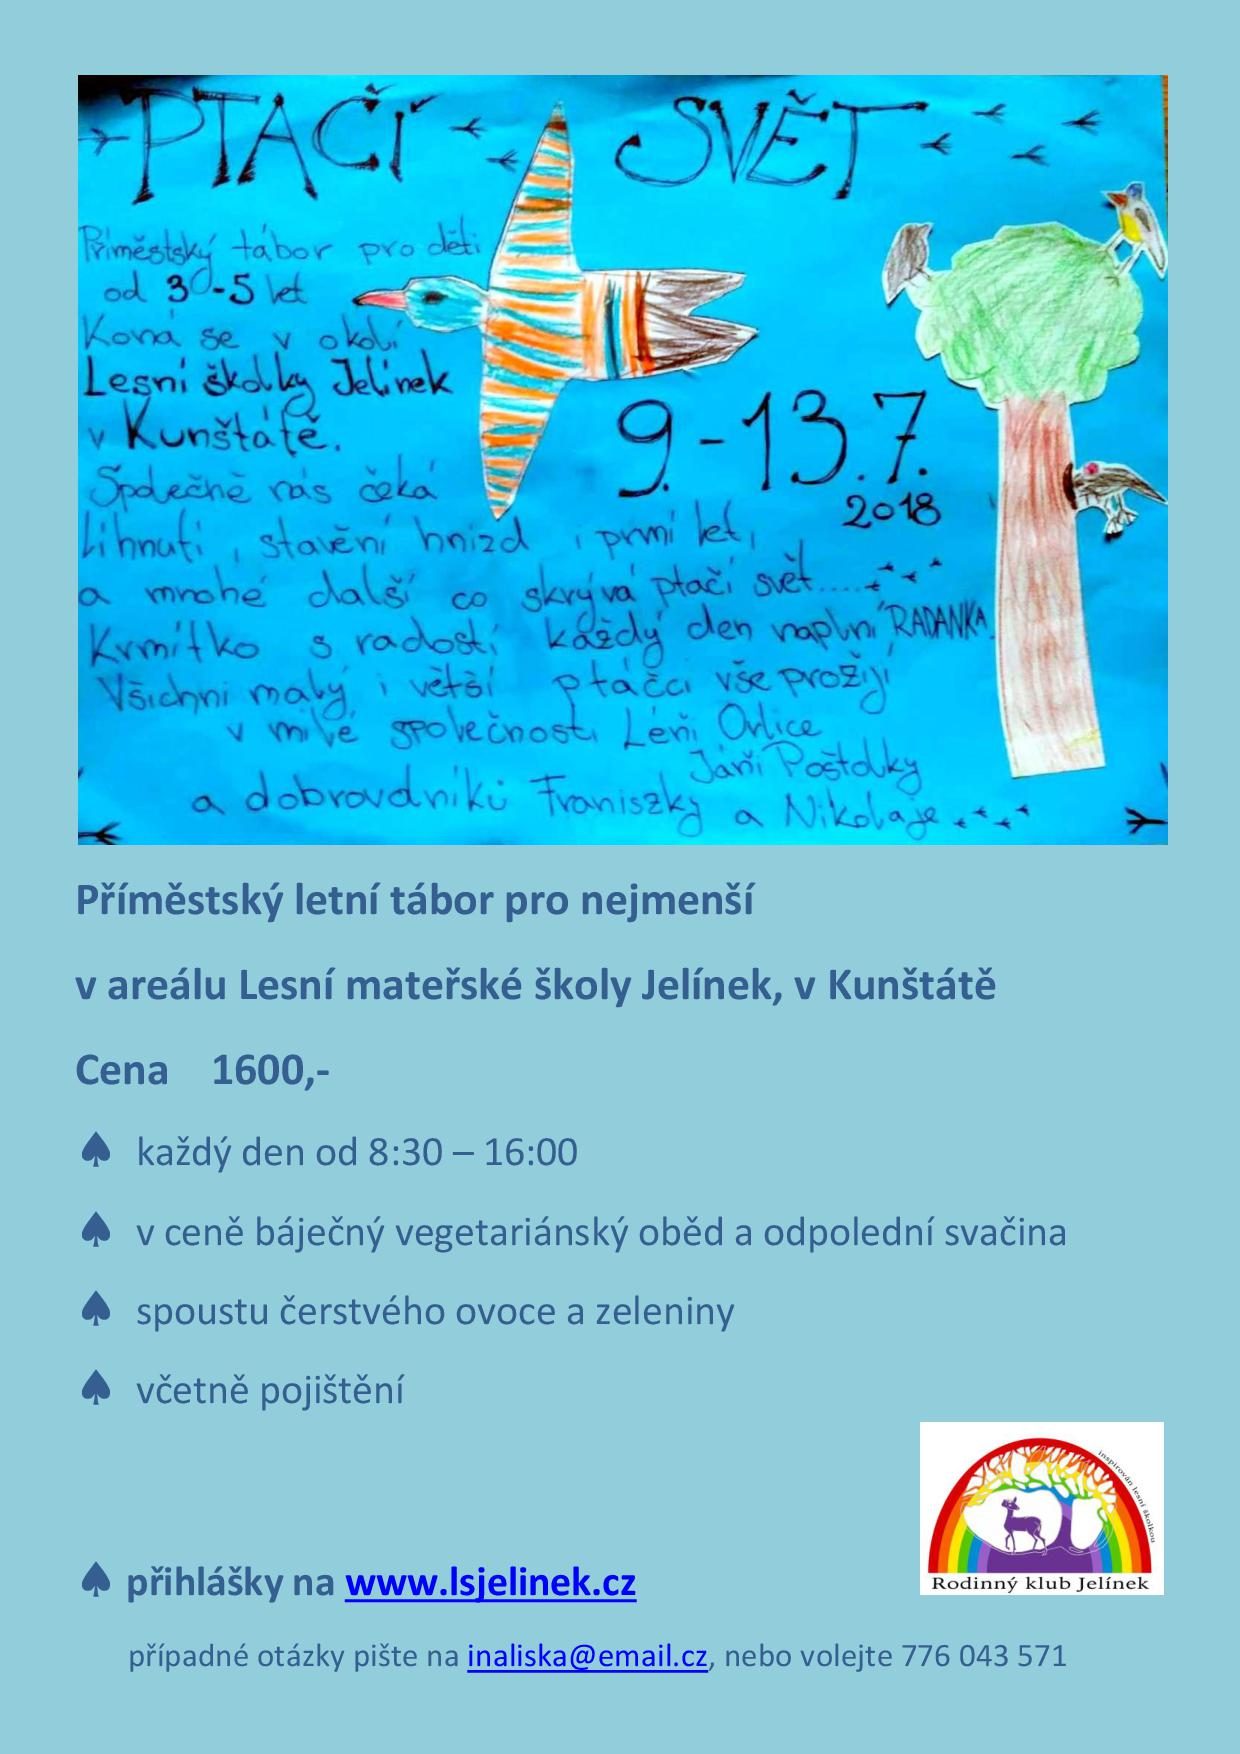 PTAČÍ SVĚT
Příměstský tábor pro děti
od 3-5 let
Koná se v okolí
Lesní školky Jelínek
v Kunštátě.
9.-13.7.
2018
Společně nás čeká
líhnutí, stavění hnízd, první let,
a mnohé další co skrývá ptačí svět.....
Krmítko s radostí každý den naplní RADANKA.
Všichni malý i větší ptáčci vše prožijí
v milé společnosti Léni Orlice
Jáni Poštolky
a dobrovdníků Franiszky a Nikolaje....
Příměstský letní tábor pro nejmenší
v areálu Lesní mateřské školy Jelínek, v Kunštátě
Cena 1600,-
♠ každý den od 8:30 – 16:00
♠ v ceně báječný vegetariánský oběd a odpolední svačina
♠ spoustu čerstvého ovoce a zeleniny
♠ včetně pojištění
inspirován lesní školkou
Rodinný klub Jelínek
♠ přihlášky na www.lsjelinek.cz
případné otázky pište na inaliska@email.cz, nebo volejte 776 043 571